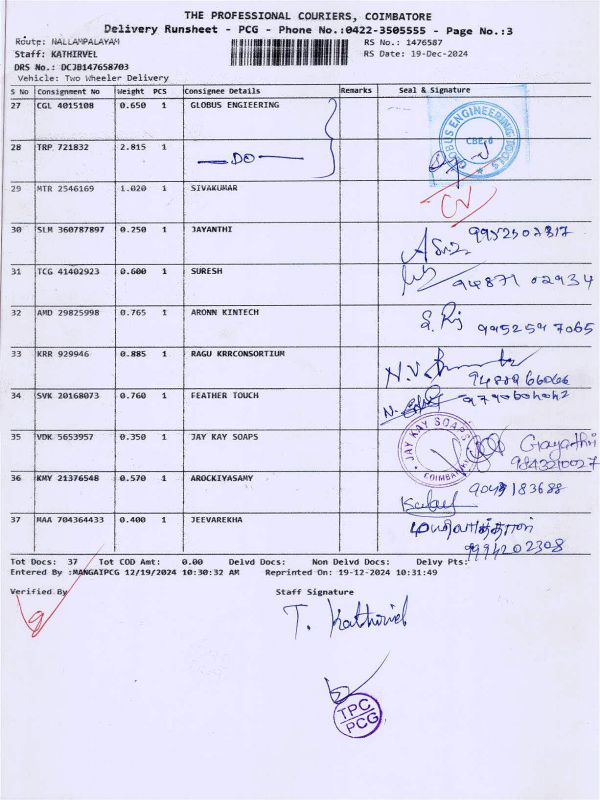 THE PROFESSIONAL COURIERS, COIMBATORE
Delivery Runsheet - PCG - Phone No.:0422-3505555 - Page No.:3
Route: NALLAMPALAYAM RS No.: 1476587
Staff: KATHIRVEL RS Date: 19-Dec-2024
DRS No.: DCJB147658703
Vehicle: Two Wheeler Delivery
S No Consignment No Weight PCS Consignee Details Remarks Seal & Signature
27 CGL 4015108 0.650 1 GLOBUS ENGIEERING
GLOBUS ENGINEERING TOOLS
CBE-6
28 TRP 721832 2.815 1 — DO —
29 MTR 2546169 1.020 1 SIVAKUMAR
30 SLM 360787897 0.250 1 JAYANTHI
31 TCG 41402923 0.600 1 SURESH 94871 02934
32 AMD 29825998 0.765 1 ARONN KINTECH 9952597065
33 KRR 929946 0.885 1 RAGU KRRCONSORTIUM
34 SVK 20168073 0.760 1 FEATHER TOUCH
35 VDK 5653957 0.350 1 JAY KAY SOAPS JAY KAY SOAPS Gayathri
36 KMY 21376548 0.570 1 AROCKIYASAMY
37 MAA 704364433 0.400 1 JEEVAREKHA
9994202308
Tot Docs: 37 Tot COD Amt: 0.00 Delvd Docs: Non Delvd Docs: Delvy Pts:
Entered By :MANGAIPCG 12/19/2024 10:30:32 AM Reprinted On: 19-12-2024 10:31:49
Verified By Staff Signature
T. Kathirvel
TPC
PCG